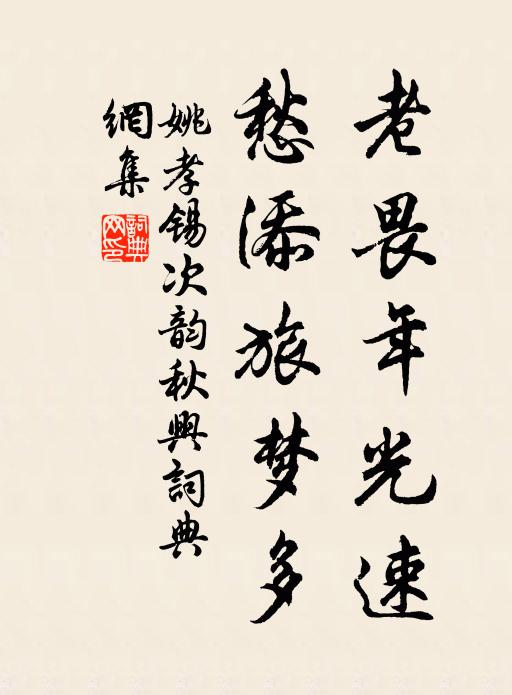 老畏年光速
愁添旅梦多
姚孝锡次韵秋興詞典
網集
詞典网印